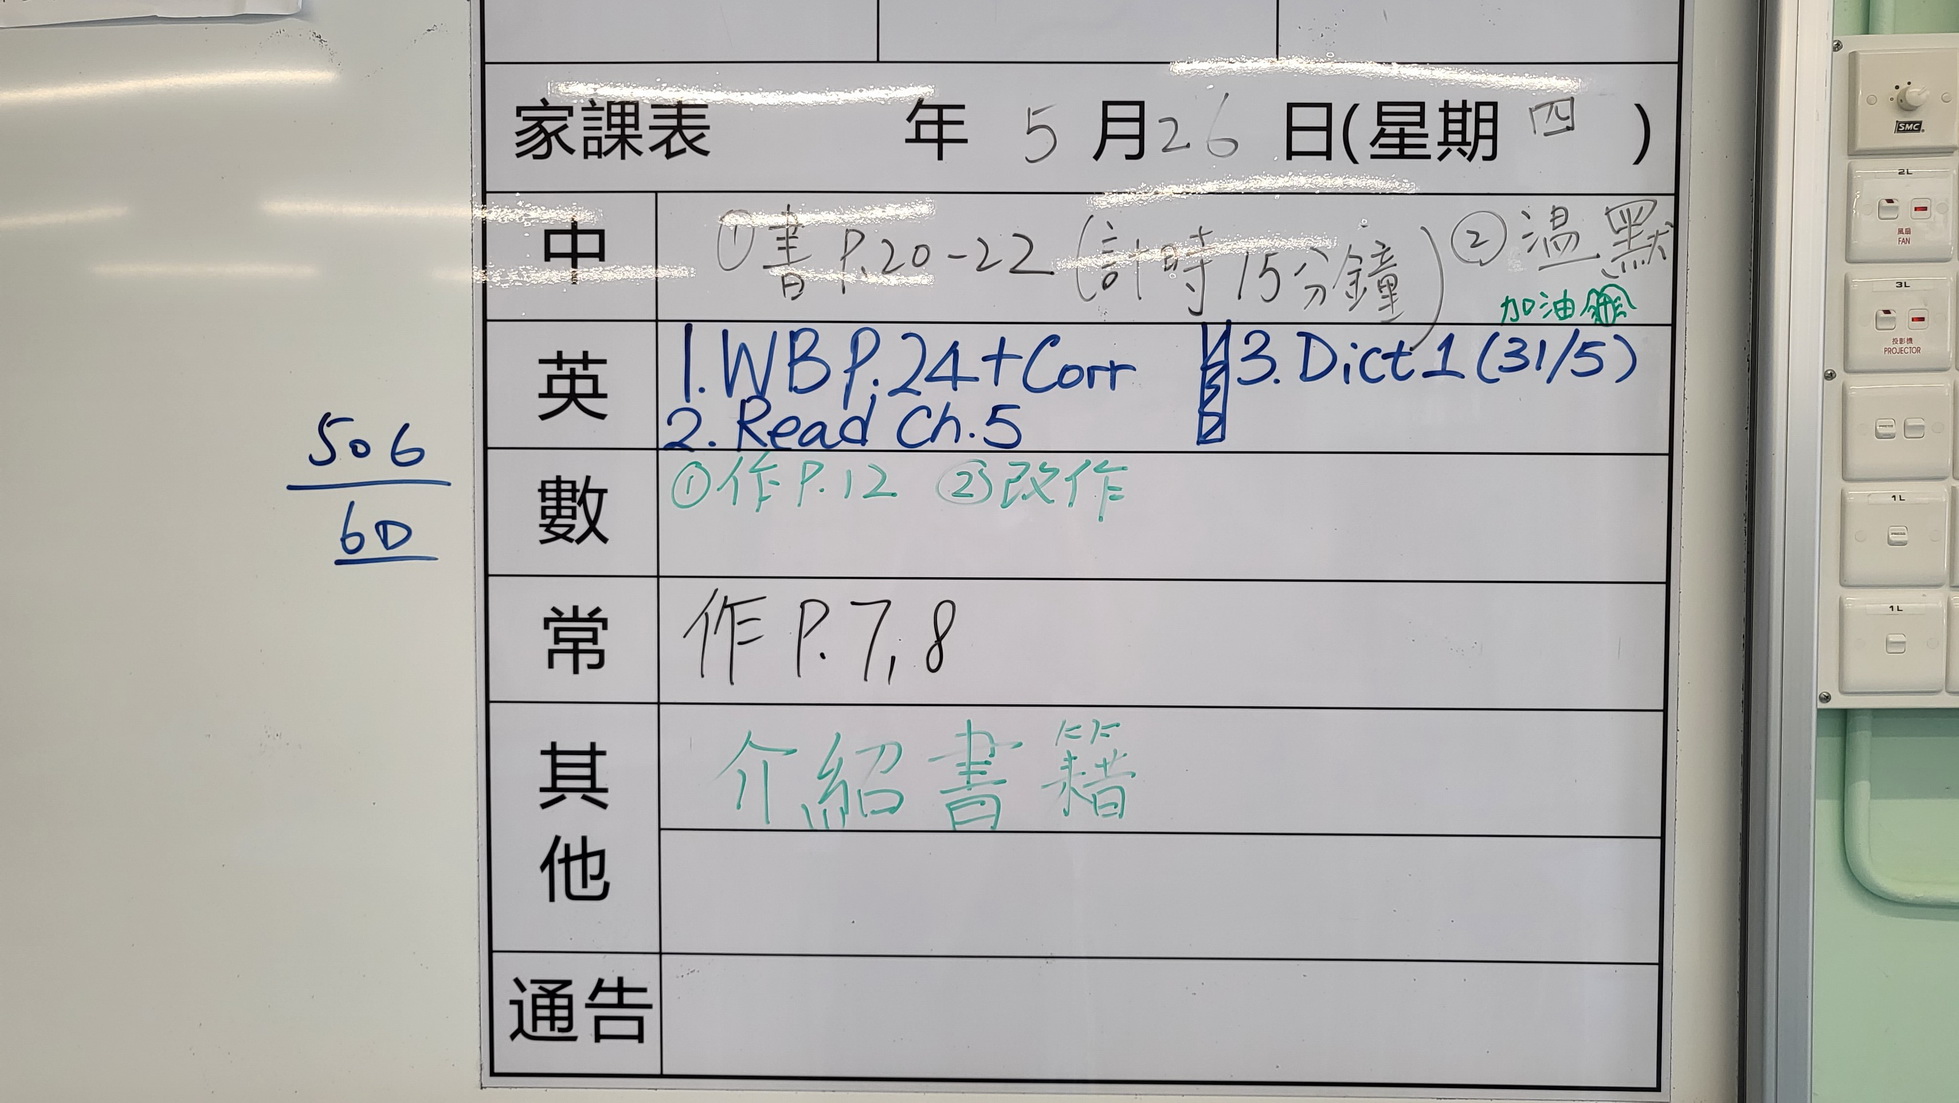 家課表 年 5 月 26 日(星期 四 )
中 ①書 P.20-22 (計時15分鐘) ②温默
加油
英 1. WB P.24 + Corr 3. Dict 1 (31/5)
2. Read Ch.5
數 ①作 P.12 ②改作
常 作 P. 7, 8
其他 介紹書籍
通告
506
60
SMC
2L
風扇
FAN
3L
投影機
PROJECTOR
1L
1L